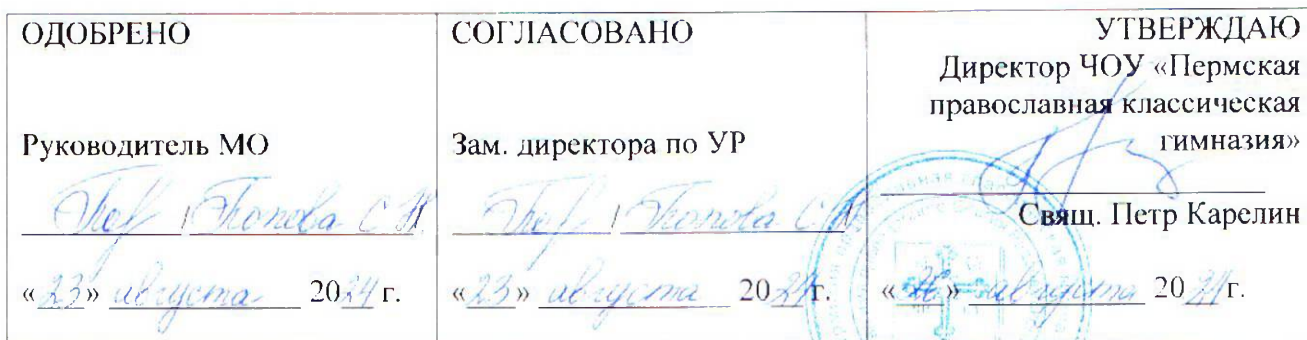 ОДОБРЕНО
Руководитель МО
Попова С.Н.
«23» августа 2024 г.
СОГЛАСОВАНО
Зам. директора по УР
Попова С.Н.
«23» августа 2024 г.
УТВЕРЖДАЮ
Директор ЧОУ «Пермская
православная классическая
гимназия»
Свящ. Петр Карелин
«26» августа 2024 г.